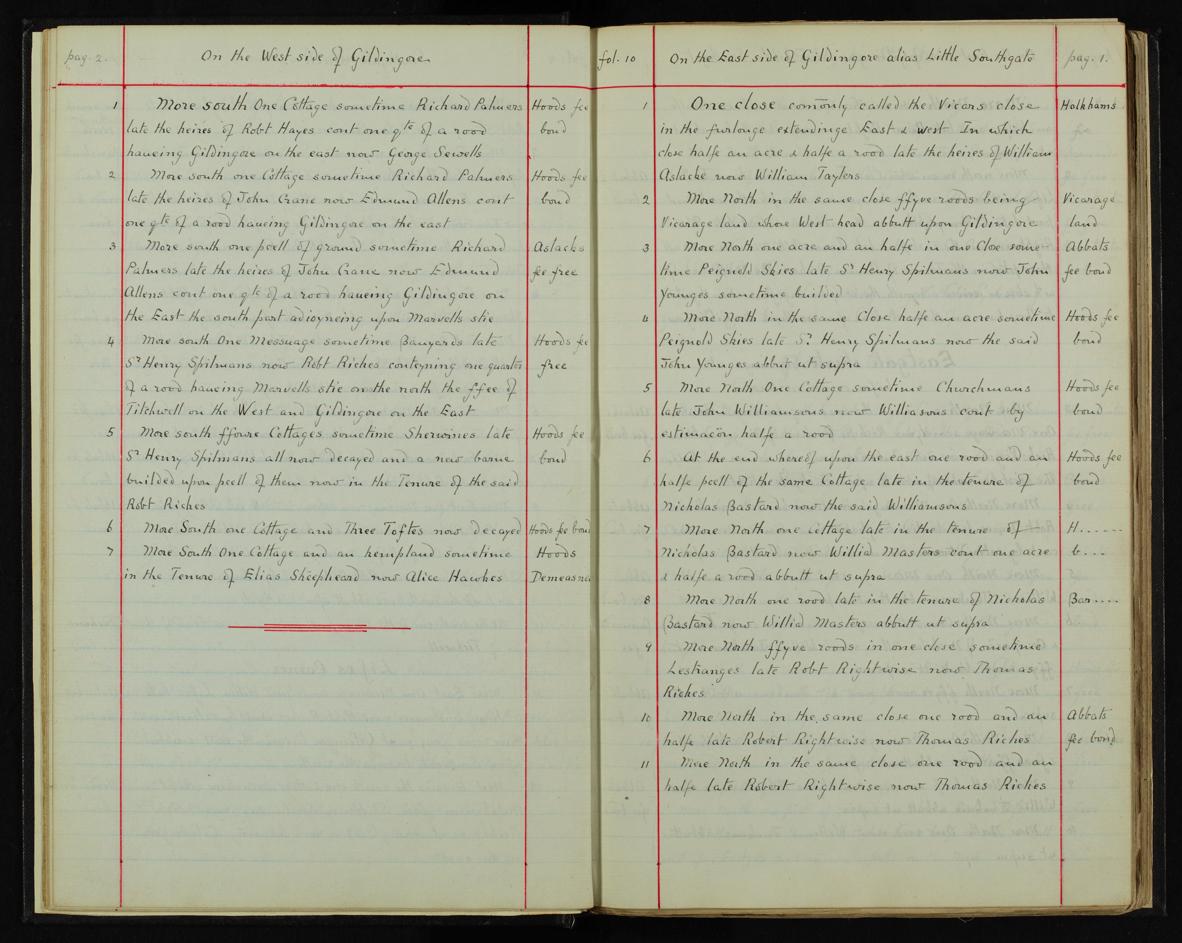 pag. 2.
On the West side of Gildingore
1 More south One Cottage sometime Richard Palmers Hoods fee
late the heires of Robt Hayes cont one qte of a rood bond
haueing Gildingore on the east now George Sewells
2 More south one Cottage sometime Richard Palmers Hoods fee
late the heires of John Crane now Edmund Allens cont bond
one qte of a rood haueing Gildingore on the east
3 More south one pcell of ground sometime Richard Aslacks
Palmers late the heires of John Crane now Edmund fee free
Allens cont one qte of a rood haueing Gildingore on
the East the south part adioyneing upon Marvells stie
4 More south One Messuage sometime Banyards late Hoods fee
Sr Henry Spilmans now Robt Riches conteyning one quarter free
of a rood haueing Marvells stie on the north the ffee of
Titchwell on the West and Gildingore on the East
5 More south ffoure Cottages sometime Sherwines late Hoods fee
Sr Henry Spilmans all now decayed and a new barne bond
builded upon pcell of them now in the Tenure of the said
Robt Riches
6 More South one Cottage and Three Toftes now decayed Hoods fee bond
7 More South One Cottage and an hempland sometime Hoods
in the Tenure of Elias Sheepheard now Alice Hawkes Demeasne
fol. 10
On the East side of Gildingore alias Little Southgate
pag. 1.
1 One close comonly called the Vicars close Holkhams
in the furlonge extendinge East & West In which fee
close halfe an acre & halfe a rood late the heires of William
Aslacke now William Taylers
2 More North in the same close ffyve roods being Vicarage
Vicarage land whose West head abbutt upon Gildingore land
3 More North one acre and an halfe in one Cloe some- Abbats
time Peignold Skies late Sr Henry Spilmans now John fee bond
Younges sometime builded
4 More North in the same Close halfe an acre sometime Hoods fee
Peignold Skies late Sr. Henry Spilmans now the said bond
John Younges abbut ut supra
5 More North One Cottage sometime Churchmans Hoods fee
late John Williamsons now Williasons cont by bond
estimacon halfe a rood
6 At the end whereof upon the east one rood and an Hoods fee
halfe pcell of the same Cottage late in the tenure of bond
Nicholas Bastard now the said Williamsons
7 More North one cottage late in the tenure of H......
Nicholas Bastard now Willia Masters cont one acre b...
& halfe a rood abbutt ut supra
8 More North one rood late in the tenure of Nicholas Bar....
Bastard now Willia Masters abbutt ut supra
9 More North ffyve roods in one close sometime
Lestranges late Robt Rightwise now Thomas
Riches
10 More North in the same close one rood and an Abbats
halfe late Robert Rightwise now Thomas Riches fee bond
11 More North in the same close one rood and an
halfe late Robert Rightwise now Thomas Riches